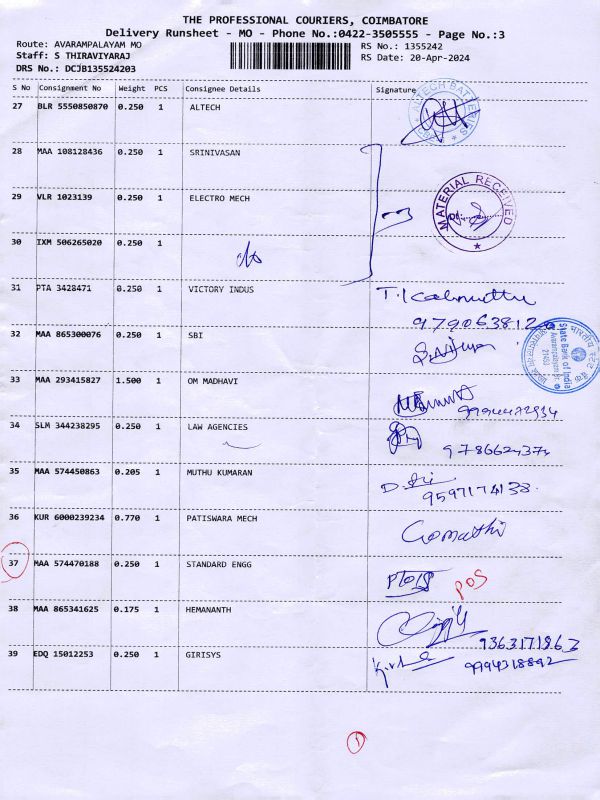 THE PROFESSIONAL COURIERS, COIMBATORE
Delivery Runsheet - MO - Phone No.:0422-3505555 - Page No.:3
Route: AVARAMPALAYAM MO
RS No.: 1355242
Staff: S THIRAVIYARAJ
RS Date: 20-Apr-2024
DRS No.: DCJB135524203
S No Consignment No Weight PCS Consignee Details Signature
27 BLR 5550850870 0.250 1 ALTECH
ALTECH BATTERIES
28 MAA 108128436 0.250 1 SRINIVASAN
29 VLR 1023139 0.250 1 ELECTRO MECH
MATERIAL RECEIVED
30 IXM 506265020 0.250 1
31 PTA 3428471 0.250 1 VICTORY INDUS
32 MAA 865300076 0.250 1 SBI
State Bank of India
33 MAA 293415827 1.500 1 OM MADHAVI
34 SLM 344238295 0.250 1 LAW AGENCIES
9786624374
35 MAA 574450863 0.205 1 MUTHU KUMARAN
9597174138
36 KUR 6000239234 0.770 1 PATISWARA MECH
Gomathi
37 MAA 574470188 0.250 1 STANDARD ENGG
POS
38 MAA 865341625 0.175 1 HEMANANTH
9363171863
39 EDQ 15012253 0.250 1 GIRISYS
9994318892
1